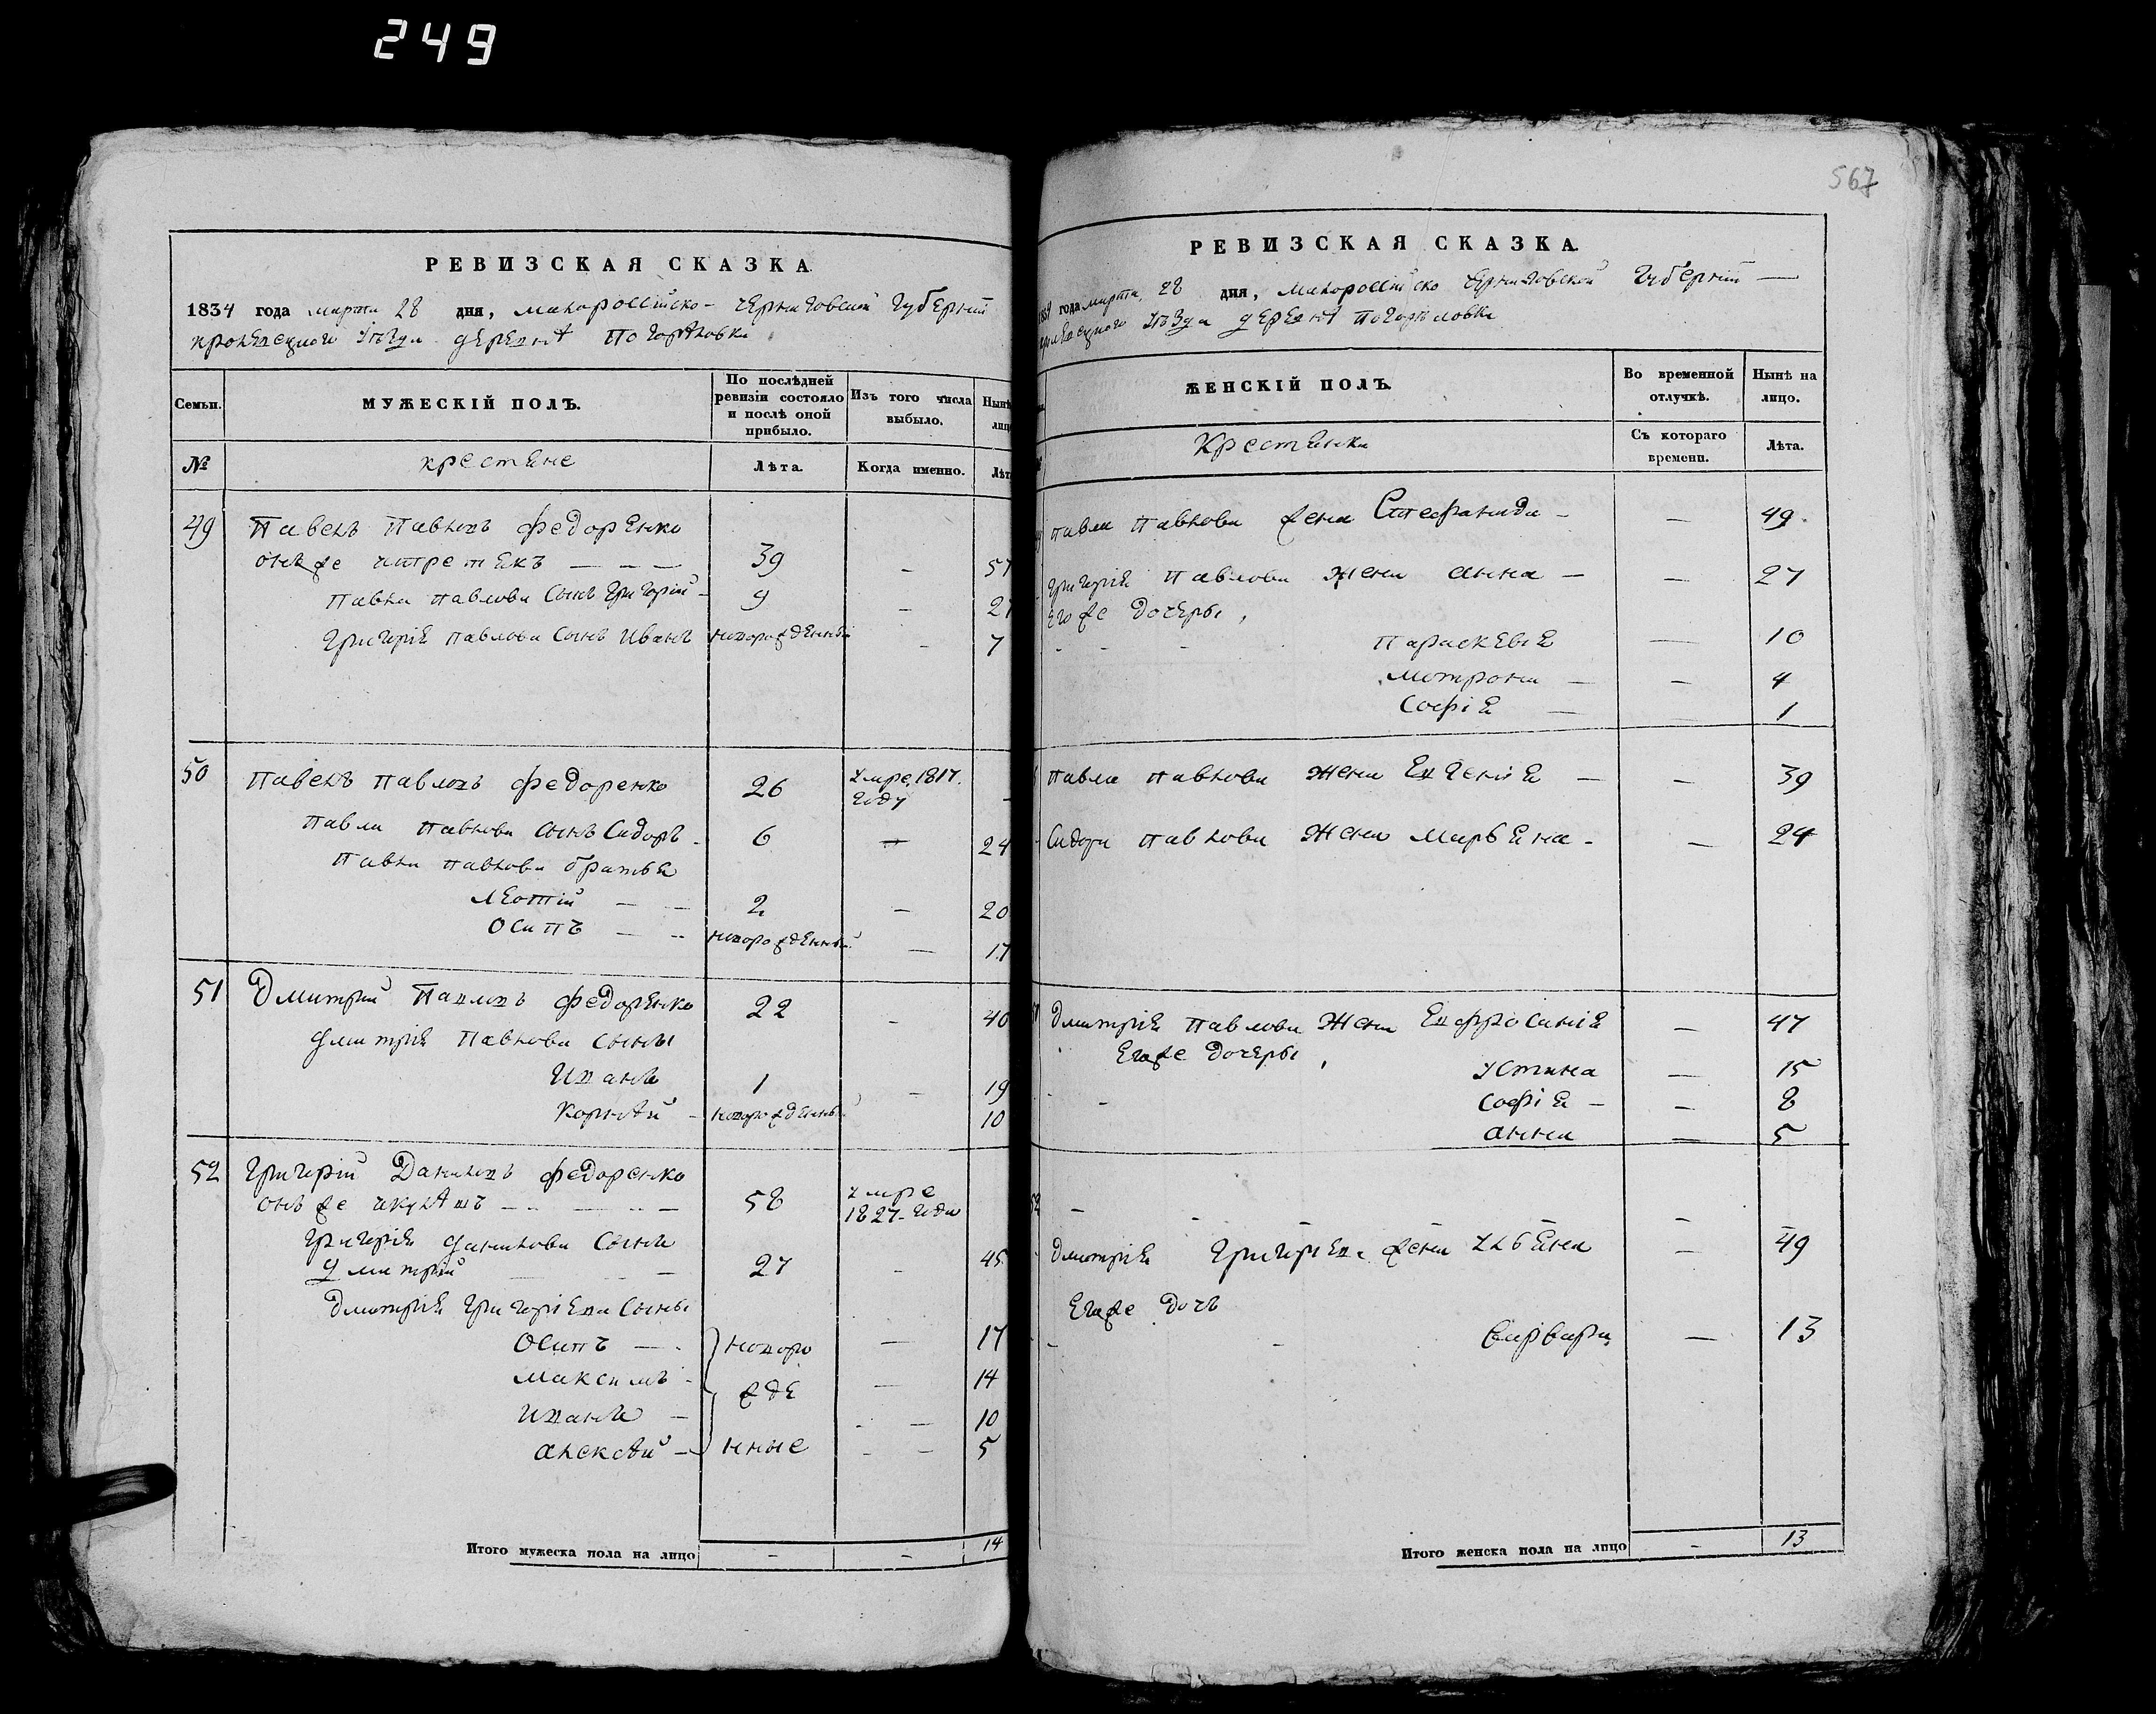 249
567
РЕВИЗСКАЯ СКАЗКА.
1834 года марта 28 дня, малороссійско-черниговской губерніи
кролевецкого уезда деревнѣ Погорѣловки
Семьи.
МУЖЕСКІЙ ПОЛЪ.
По послѣдней ревизіи состояло и послѣ оной прибыло.
Изъ того числа выбыло.
Нынѣ
лиц
№
крестяне
Лѣта.
Когда именно.
Лѣт
49 Павелъ Павловъ Федоренко
онъ же 39 - 57
Павла Павлова сынъ Григорій - 9 - 27
Григорія Павлова сынъ Иванъ новорожденный - 7
50 Павелъ Павловъ Федоренко 26 умре 1817. году -
Павла Павлова сынъ Сидоръ - 6 - 24
Павла Павлова братья
Леотій - - 2 - 20
Осипъ - - новорожденный - 17
51 Дмитрий Павловъ Федоренко 22 - 40
Дмитрія Павлова сыны
Иванъ 1 - 19
Корнѣй - новорожденный 10
52 Григорій Даниловъ Федоренко
онъ же 58 умре 1827-года
Григорія Данилова сынъ
Дмитрий - 27 - 45
Дмитрія Григоріева сыны
Осипъ - новоро - 17
Максимъ - жде - 14
Иванъ - - - 10
Алексѣй - нные - - 5
Итого мужеска пола на лицо - - 14
РЕВИЗСКАЯ СКАЗКА.
1834 года марта, 28 дня, малороссійско черниговской губерніи —
кролевецкого уѣзда деревнѣ Погорѣловки
ЖЕНСКІЙ ПОЛЪ.
Во временной отлучкѣ.
Нынѣ на лицо.
Крестянки
Съ котораго времени.
Лѣта.
Павла Павлова жена Стефанида - — 49.
Григорія Павлова жена Анна - — 27
Его же дочеры,
Параскевія — 10
Мотрона — — 4
Софія — 1
Павла Павлова жена Евгенія — — 39
Сидора Павлова жена Марѣяна - — 24
51 Дмитрія Павлова жена Евфросинія — 47
Его же дочеры,
Устина — 15
Софія - — 8
Анна — 5
52 - - - - - -
Дмитрія Григоріева жена Улѣяна — 49
Его же дочъ
Варвара — 13
Итого женска пола на лицо - 13